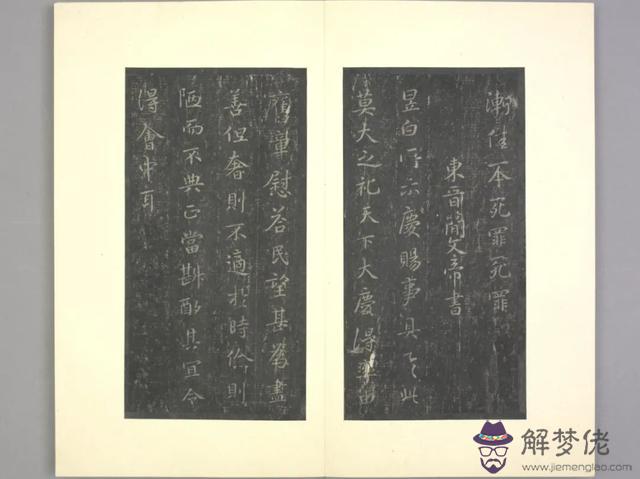 漸佳一本死罪死罪
東晉簡文帝書
昱白所示慶賜事具之此
莫大之礼天下大慶得率由
舊章慰荅民望甚為盡
善但奢則不適於時儉則
陋而不典正當斟酌其宜令
得會中耳
解梦佬
www.jiemenglao.com